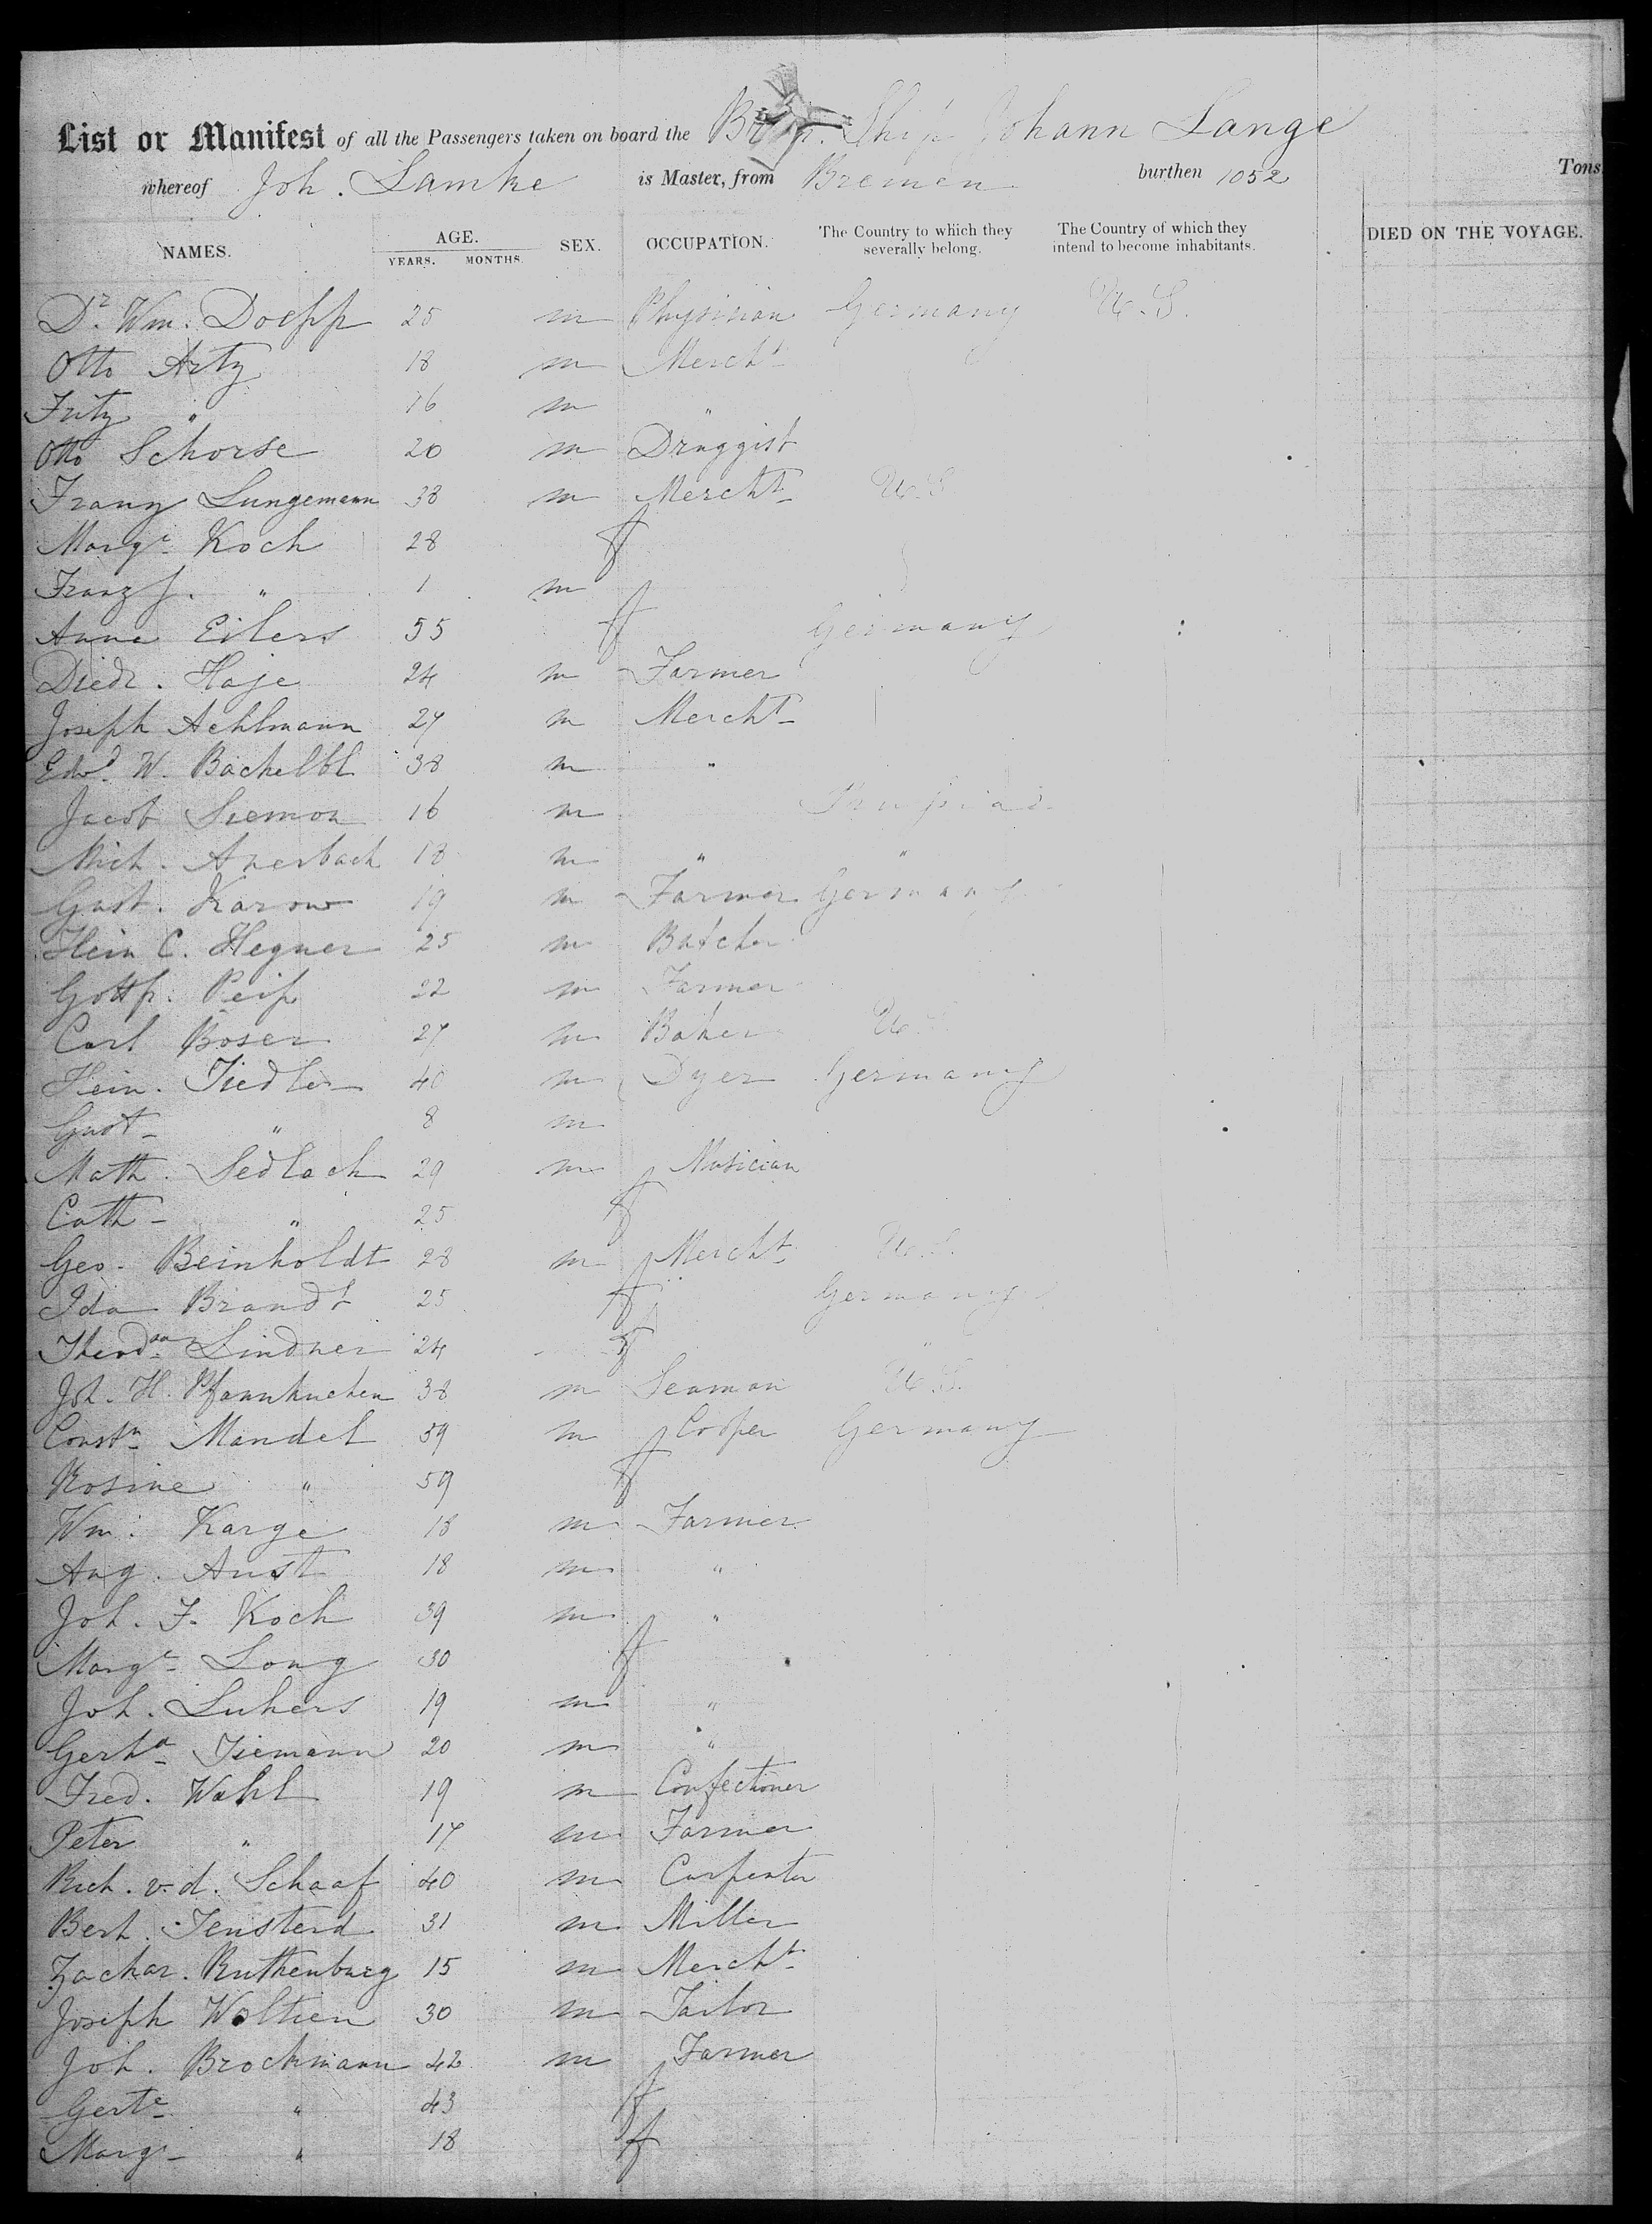 List or Manifest of all the Passengers taken on board the Ship Johann Lange
whereof Joh. Lamke is Master, from Bremen burthen 1052 Tons
NAMES. AGE. YEARS. MONTHS. SEX. OCCUPATION. The Country to which they severally belong. The Country of which they intend to become inhabitants. DIED ON THE VOYAGE.
Dr. Wm. Doepp 25 m Physician Germany U.S.
Otto Artz 18 m Mercht
Fritz " 16 m "
Otto Schorse 20 m Druggist
Franz Lungemann 38 m Mercht U.S.
Margt Koch 28 f
Franz J. " 1 m
Anna Eilers 55 f Germany
Diedr. Haje 24 m Farmer
Joseph Aehlmann 27 m Mercht
Edwd. W. Bachelbl 38 m "
Jacob Siemon 16 m
Mich. Auerbach 18 m " "
Gust. Karow 19 m Farmer Germany
Hein C. Hegner 25 m Butcher
Gottfr. 22 m Farmer
Carl Boser 27 m Baker U.S.
Hein. Fiedler 40 m Dyer Germany
Gust. " 8 m
Math. Sedlach 29 m Musician
Cath. " 25 f
Geo. Beinholdt 28 m Mercht U.S.
Ida Brandt 25 f Germany
Lindner 24 f "
Joh. H. Pfannkuchen 38 m Seaman U.S.
Constn Mandel 59 m Cooper Germany
Rosine " 59 f
Wm. Karge 18 m Farmer
Aug. Aust 18 m "
Joh. F. Koch 39 m "
Margt Long 30 f
Joh. Luhers 19 m "
Gerhd Tiemann 20 m "
Fred. Wahl 19 m Confectioner
Peter " 17 m Farmer
Rich. v. d. Schaaf 40 m Carpenter
Bert. Jensterd 31 m Miller
Zachar. Ruthenburg 15 m Mercht
Joseph Woltien 30 m Tailor
Joh. Brockmann 42 m Farmer
Gerte " 43 f
Marg " 18 f